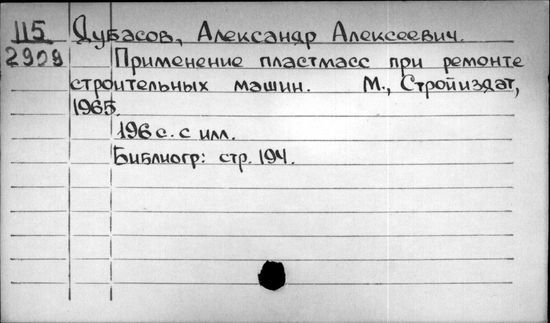 115 Дубасов, Александр Алексеевич.
2909 Применение пластмасс при ремонте
строительных машин. М., Стройиздат,
1965.
196 с. с илл.
Библиогр: стр. 194.